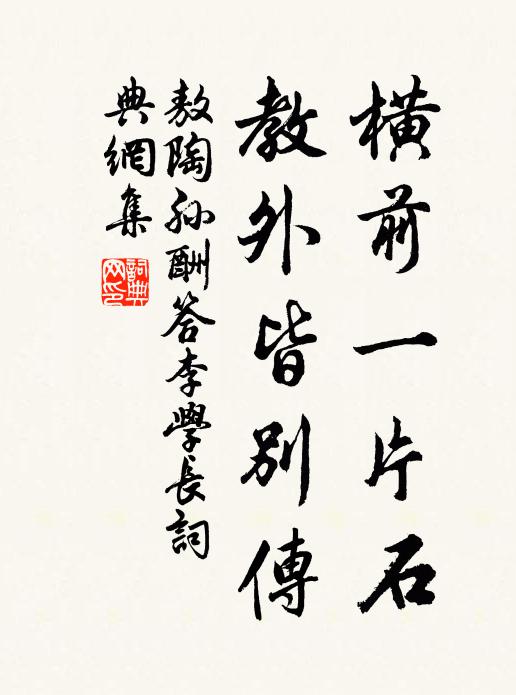 橫前一片石
教外皆別傳
敖陶孙酬答李學長詞
典網集
詞典
网印